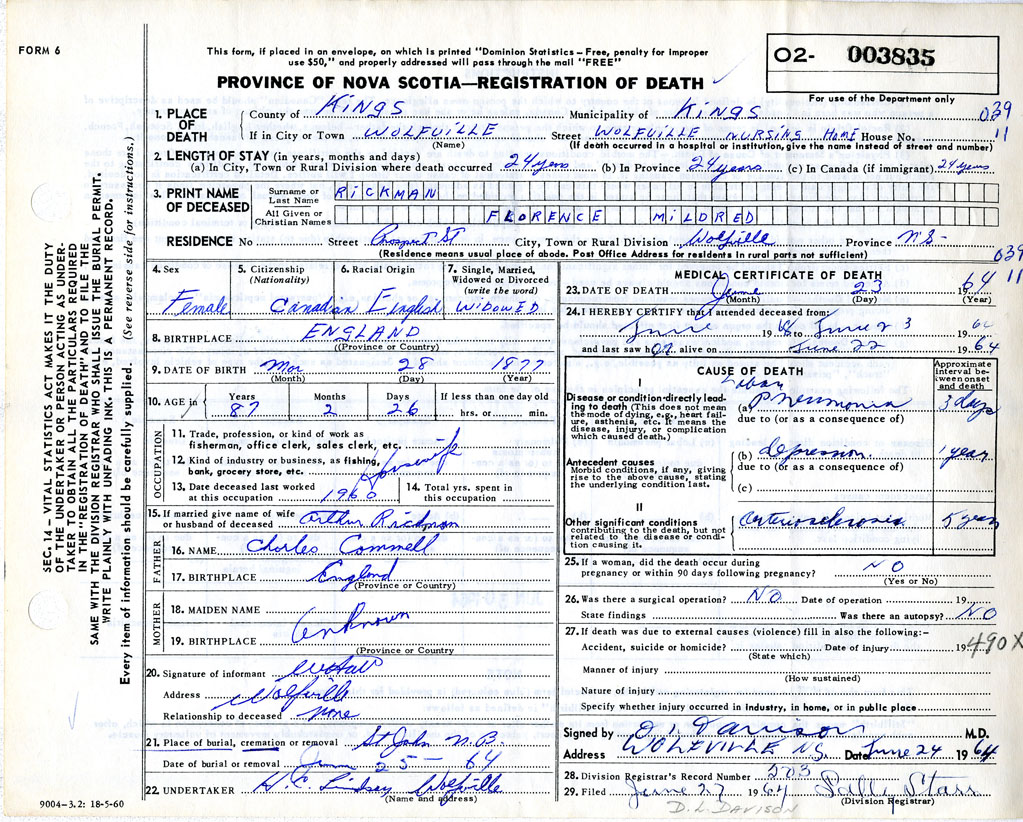 FORM 6
This form, if placed in an envelope, on which is printed "Dominion Statistics – Free, penalty for improper
use $50," and properly addressed will pass through the mail "FREE"
PROVINCE OF NOVA SCOTIA—REGISTRATION OF DEATH
02- 003835
For use of the Department only
1. PLACE OF DEATH County of Kings Municipality of Kings 039
If in City or Town WOLFVILLE Street WOLFVILLE NURSING HOME House No. 11
(Name) (If death occurred in a hospital or institution, give the name instead of street and number)
2. LENGTH OF STAY (in years, months and days)
(a) In City, Town or Rural Division where death occurred 24 years (b) In Province 24 years (c) In Canada (if immigrant) 24 years
3. PRINT NAME OF DECEASED Surname or Last Name RICKMAN
All Given or Christian Names FLORENCE MILDRED
RESIDENCE No Street Prospect St City, Town or Rural Division Wolfville Province N S -
(Residence means usual place of abode. Post Office Address for residents in rural parts not sufficient) 039
11
4. Sex Female
5. Citizenship (Nationality) Canadian
6. Racial Origin English
7. Single, Married, Widowed or Divorced (write the word) WIDOWED
8. BIRTHPLACE ENGLAND
(Province or Country)
9. DATE OF BIRTH Mar 28 1877
(Month) (Day) (Year)
10. AGE in Years 87 Months 2 Days 26 If less than one day old hrs. or min.
OCCUPATION
11. Trade, profession or kind of work as fisherman, office clerk, sales clerk, etc.
12. Kind of industry or business, as fishing, bank, grocery store, etc. Housewife
13. Date deceased last worked at this occupation 1960
14. Total yrs. spent in this occupation
15. If married give name of wife or husband of deceased Arthur Rickman
FATHER
16. NAME Charles
17. BIRTHPLACE England
(Province or Country)
MOTHER
18. MAIDEN NAME
19. BIRTHPLACE Unknown
(Province or Country
20. Signature of informant
Address Wolfville
Relationship to deceased none
21. Place of burial, cremation or removal St John N.B.
Date of burial or removal June 25 - 64
22. UNDERTAKER H. C. Lindsay Wolfville
(Name and address)
9004–3.2: 18-5-60
MEDICAL CERTIFICATE OF DEATH
23. DATE OF DEATH June 23 1964
(Month) (Day) (Year)
24. I HEREBY CERTIFY that I attended deceased from:
June 19 to June 23 1964
and last saw her alive on June 22 1964
CAUSE OF DEATH
Approximate interval between onset and death
I
Disease or condition directly leading to death (This does not mean the mode of dying, e.g., heart failure, asthenia, etc. It means the disease, injury, or complication which caused death.)
(a) Lobar Pneumonia 3 days
due to (or as a consequence of)
Antecedent causes
Morbid conditions, if any, giving rise to the above cause, stating the underlying condition last.
(b) depression 1 year
due to (or as a consequence of)
(c)
II
Other significant conditions contributing to the death, but not related to the disease or condition causing it.
Arteriosclerosis 5 years
25. If a woman, did the death occur during pregnancy or within 90 days following pregnancy? NO
(Yes or No)
26. Was there a surgical operation? NO Date of operation 19
State findings Was there an autopsy? NO
27. If death was due to external causes (violence) fill in also the following:–
Accident, suicide or homicide? Date of injury 19 490X
(State which)
Manner of injury
(How sustained)
Nature of injury
Specify whether injury occurred in industry, in home, or in public place
Signed by D. L. Davison M.D.
Address WOLFVILLE NS. Date June 24 1964
28. Division Registrar's Record Number 203
29. Filed June 27 1964 Starr
(Division Registrar)
D. L. DAVISON
SEC. 14 – VITAL STATISTICS ACT MAKES IT THE DUTY
OF THE UNDERTAKER OR PERSON ACTING AS UNDER-
TAKER TO OBTAIN ALL THE PARTICULARS REQUIRED
IN THE "REGISTRATION OF DEATH" AND TO FILE THE
SAME WITH THE DIVISION REGISTRAR WHO SHALL ISSUE THE BURIAL PERMIT.
WRITE PLAINLY WITH UNFADING INK. THIS IS A PERMANENT RECORD.
Every item of information should be carefully supplied. (See reverse side for instructions.)